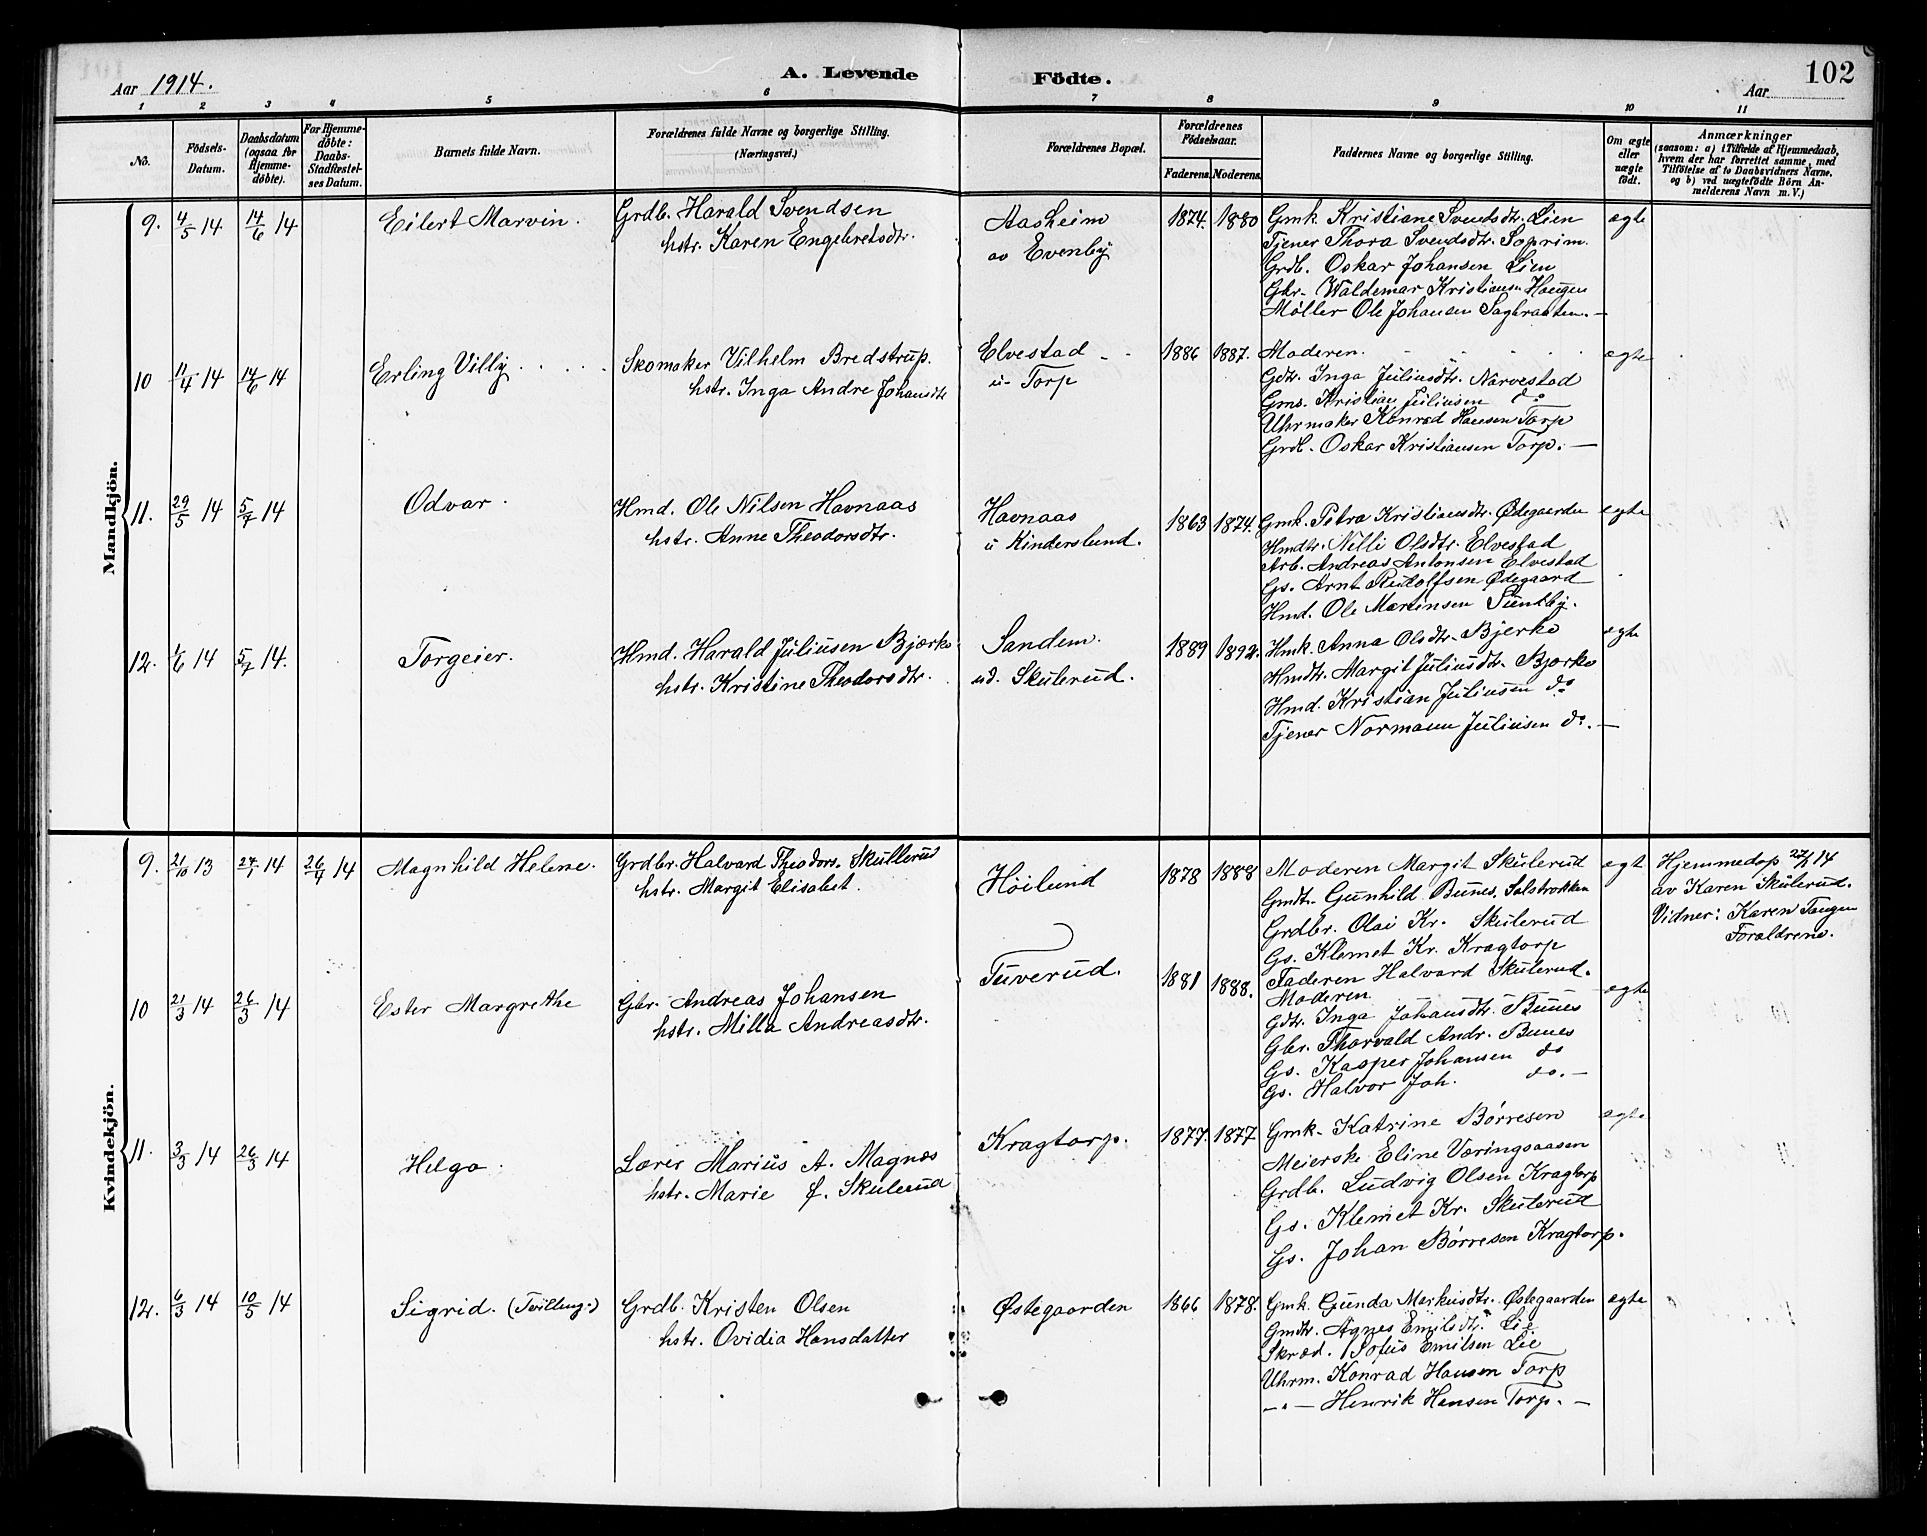 Aar 1914.
A. Levende
Födte.
102
Aar
1 2 3 4 5 6 7 8 9 10 11
No.
Födsels-Datum.
Daabsdatum (ogsaa for Hjemme-döbte).
For Hjemme-döbte: Daabs-Stadfæstel-ses Datum.
Barnets fulde Navn.
Forældrenes fulde Navne og borgerlige Stilling. (Næringsvei.)
Forældrenes Bopæl.
Forældrenes Födselsaar.
Faderens. Moderens.
Faddernes Navne og borgerlige Stilling.
Om ægte eller uægte födt.
Anmærkninger
(saasom: a) i Tilfælde af Hjemmedaab,
hvem der har forrettet samme, med
Tilföielse af to Daabsvidners Navne.
og b) ved uægtefödte Börn An-
melderens Navn m. V.)
Mandkjön.
9. 4/5 14 14/6 14 Eilert Marvin.
Grdb. Harald Svendsen
hstr. Karen Engebretsdtr.
Aasheim
av Evenby
1874. 1880
Gmk. Kristiane Svendsdtr. Lien
Tjener Thora Svendsdtr. Soprim.
Grdb. Oskar Johansen Lien
Gbr. Waldemar Kristiansen Haugen
Møller Ole Johansen Sagbraaten.
ægte
10 11/4 14 14/6 14 Erling Villy
Skomaker Vilhelm Bredstrup.
hstr. Inga Andre Johansdtr
Elvestad
u. Torp
1886 1887.
Moderen.
Gdtr. Inga Juliusdtr. Narvestad
Gms. Kristian Juliusen do
Uhrmaker Konrad Hansen Torp
Grdb. Oskar Kristiansen Torp.
ægte
11. 29/5 14 5/7 14 Odvar.
Hmd. Ole Nilsen Havnaas
hstr. Anne Theodorsdtr.
Havnaas
u Kinderslund.
1863 1874.
Gmk. Petra Kristiansdtr. Ødegaarden
Hmdtr. Nilli Olsdtr. Elvestad
Arb. Andreas Antonsen Elvestad
Gs. Arnt Rudolfsen Ødegaard
Hmd. Ole Martinsen Sundby.
ægte
12. 1/6 14 5/7 14. Torgeier.
Hmd. Harald Juliusen Bjærke
hstr. Kristine Theodorsdtr.
Sandem.
ud. Skulerud.
1889 1892.
Hmk. Anna Olsdtr. Bjerke
Hmdtr. Margit Juliusdtr. Bjærke
Hmd. Kristian Juliusen do
Tjener Normann Juliusen do.
ægte
Kvindekjön.
9. 21/10 13 27/1 14 26/4 14 Magnhild Helene.
Grdbr. Halvard Theodors. Skullerud
hstr. Margit Elisabet.
Höilund
1878 1888
Moderen Margit Skulerud
Gmdtr. Gunhild Bunes, Solstrokken
Grdbr. Olai Kr. Skulerud
Gs. Klemet Kr. Kragtorp
Faderen Halvard Skulerud.
ægt
Hjemmedøp 27/1 14
av Karen Skulerud.
Vidner: Karen Tangen
Forældrene.
10 21/3 14 26/3 14 Ester Margrethe
Gbr. Andreas Johansen
hstr. Milla Andreasdtr.
Tuverud.
1881 1888.
Moderen
Gdtr. Inga Johansdtr. Bunes
Gbr. Thorvald Andr. Bunes
Gs. Kasper Johansen do
Gs. Halvor Joh. do.
ægte
11. 3/3 14 26/3 14 Helga.
Lærer Marius A. Magnæs
hstr. Marie f. Skulerud
Kragtorp.
1877. 1877
Gmk. Katrine Børresen
Meierske Eline Væringsaasen
Grdb. Ludvig Olsen Kragtorp
Gs. Klemet Kr. Skulerud
Gs. Johan Børresen Kragtorp.
ægte
12. 6/3 14 10/5 14 Sigrid. (Tvilling.)
Grdb. Kristen Olsen
hstr. Ovidia Hansdatter
Østegaarden
1866 1878.
Gmk. Gunda Markusdtr. Østegaarden
Gmdtr. Agnes Emilsdtr. Lie
Skræd. Sofus Emilsen Lie
Uhrm. Konrad Hansen Torp
—„— Henrik Hansen Torp.
ægte